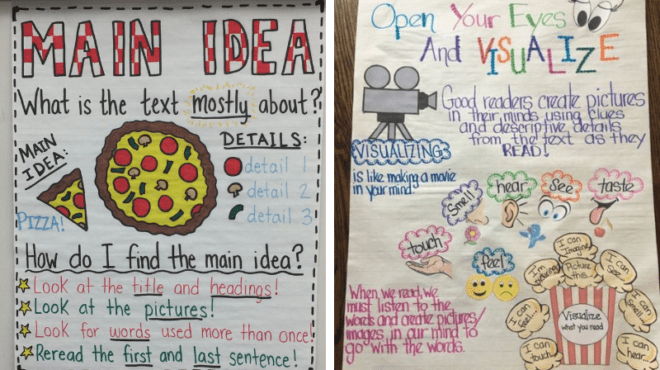 MAIN IDEA
What is the text mostly about?
MAIN
IDEA:
PIZZA!
DETAILS:
detail 1
detail 2
detail 3
How do I find the main idea?
Look at the title and headings!
Look at the pictures!
Look for words used more than once!
Reread the first and last sentence!
Open Your Eyes
And VISUALIZE
Good readers create pictures
in their minds using clues
and descriptive details
from the text as they
READ!
VISUALIZING
is like making a movie
in your mind
smell
hear
see
taste
touch
feel
When we read, we
must listen to the
words and create pictures/
images in our mind to
go with the words.
I can
Imagine
Picture
this...
I can
See
I can
Smell
I can
Feel...
I can
touch
I can
hear...
Visualize
what you read